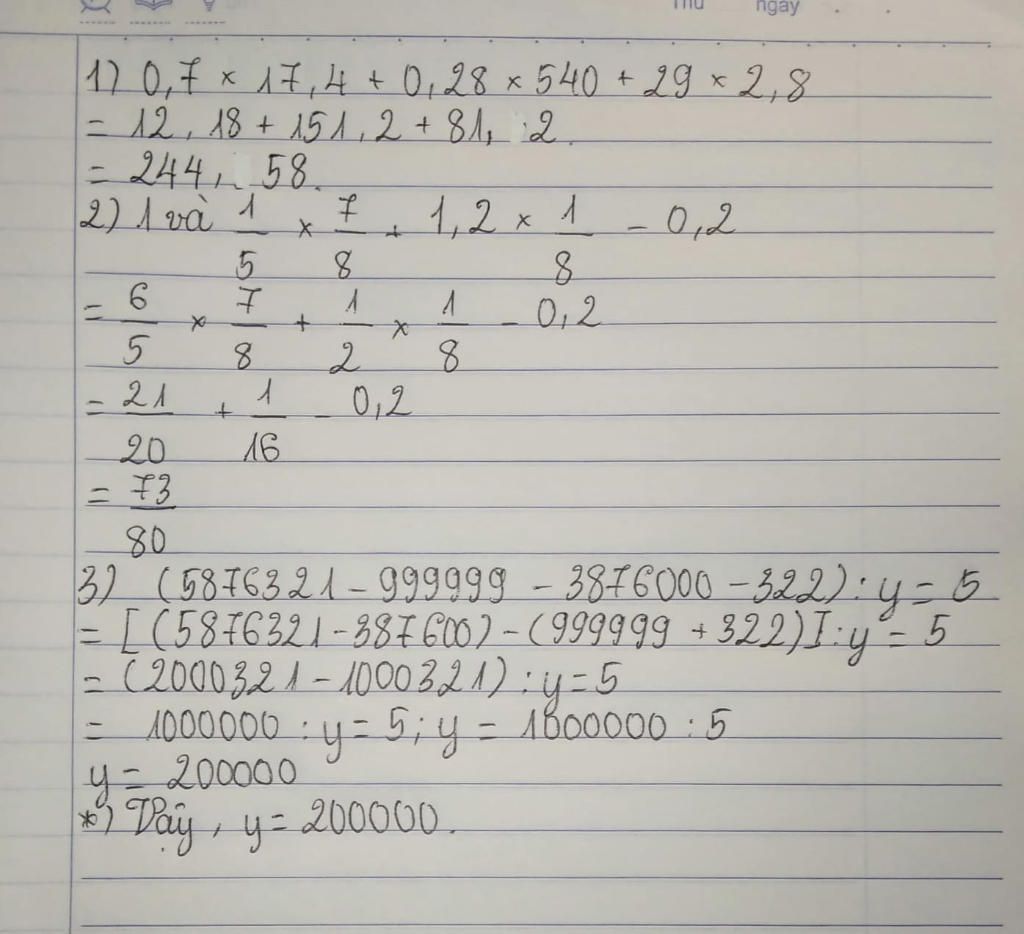 Thứ ngày . .
1) 0,7 × 17,4 + 0,28 × 540 + 29 × 2,8
= 12,18 + 151,2 + 81, 2.
= 244, 58.
2) 1 và 1/5 × 7/8 + 1,2 × 1/8 - 0,2
= 6/5 × 7/8 + 1/2 × 1/8 - 0,2
= 21/20 + 1/16 - 0,2
= 73/80
3) (5876321 - 999999 - 3876000 - 322) : y = 5
= [(5876321 - 387600) - (999999 + 322)] : y = 5
= (2000321 - 1000321) : y = 5
= 1000000 : y = 5; y = 1000000 : 5
y = 200000
*) Vậy, y = 200000.